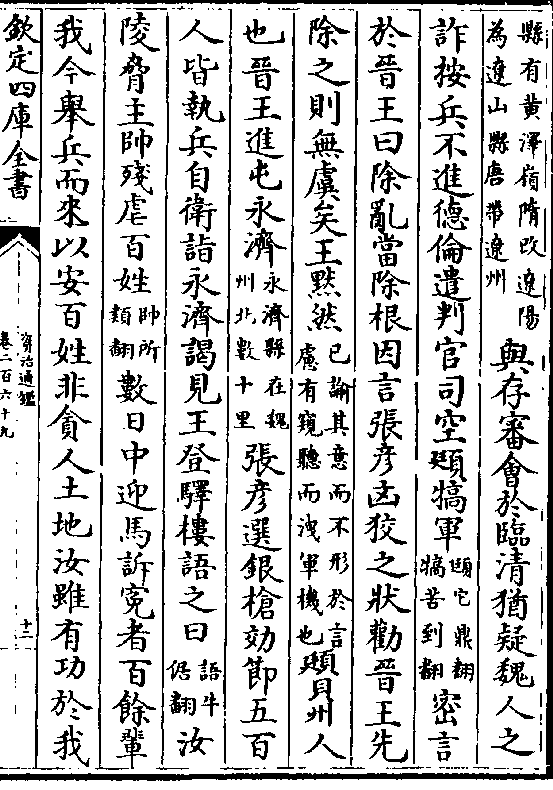 縣有黄澤嶺隋改遼陽
為遼山縣唐帶遼州
與存審會於臨清猶疑魏人之
詐按兵不進德倫遣判官司空頲犒軍
頲它鼎翻
犒苦到翻
密言
於晉王曰除亂當除根因言張彦凶狡之狀勸晉王先
除之則無虞矣王黙然
已諭其意而不形於言
慮有窺聽而洩軍機也
頲貝州人
也晉王進屯永濟
永濟縣在魏
州北數十里
張彦選銀槍効節五百
人皆執兵自衛詣永濟謁見王登驛樓語之曰
語牛
倨翻
汝
陵脅主帥殘虐百姓
帥所
類翻
數日中迎馬訴寃者百餘輩
我今舉兵而來以安百姓非貪人土地汝雖有功於我
欽定四庫全書
資治通鑑
卷二百六十九
十二